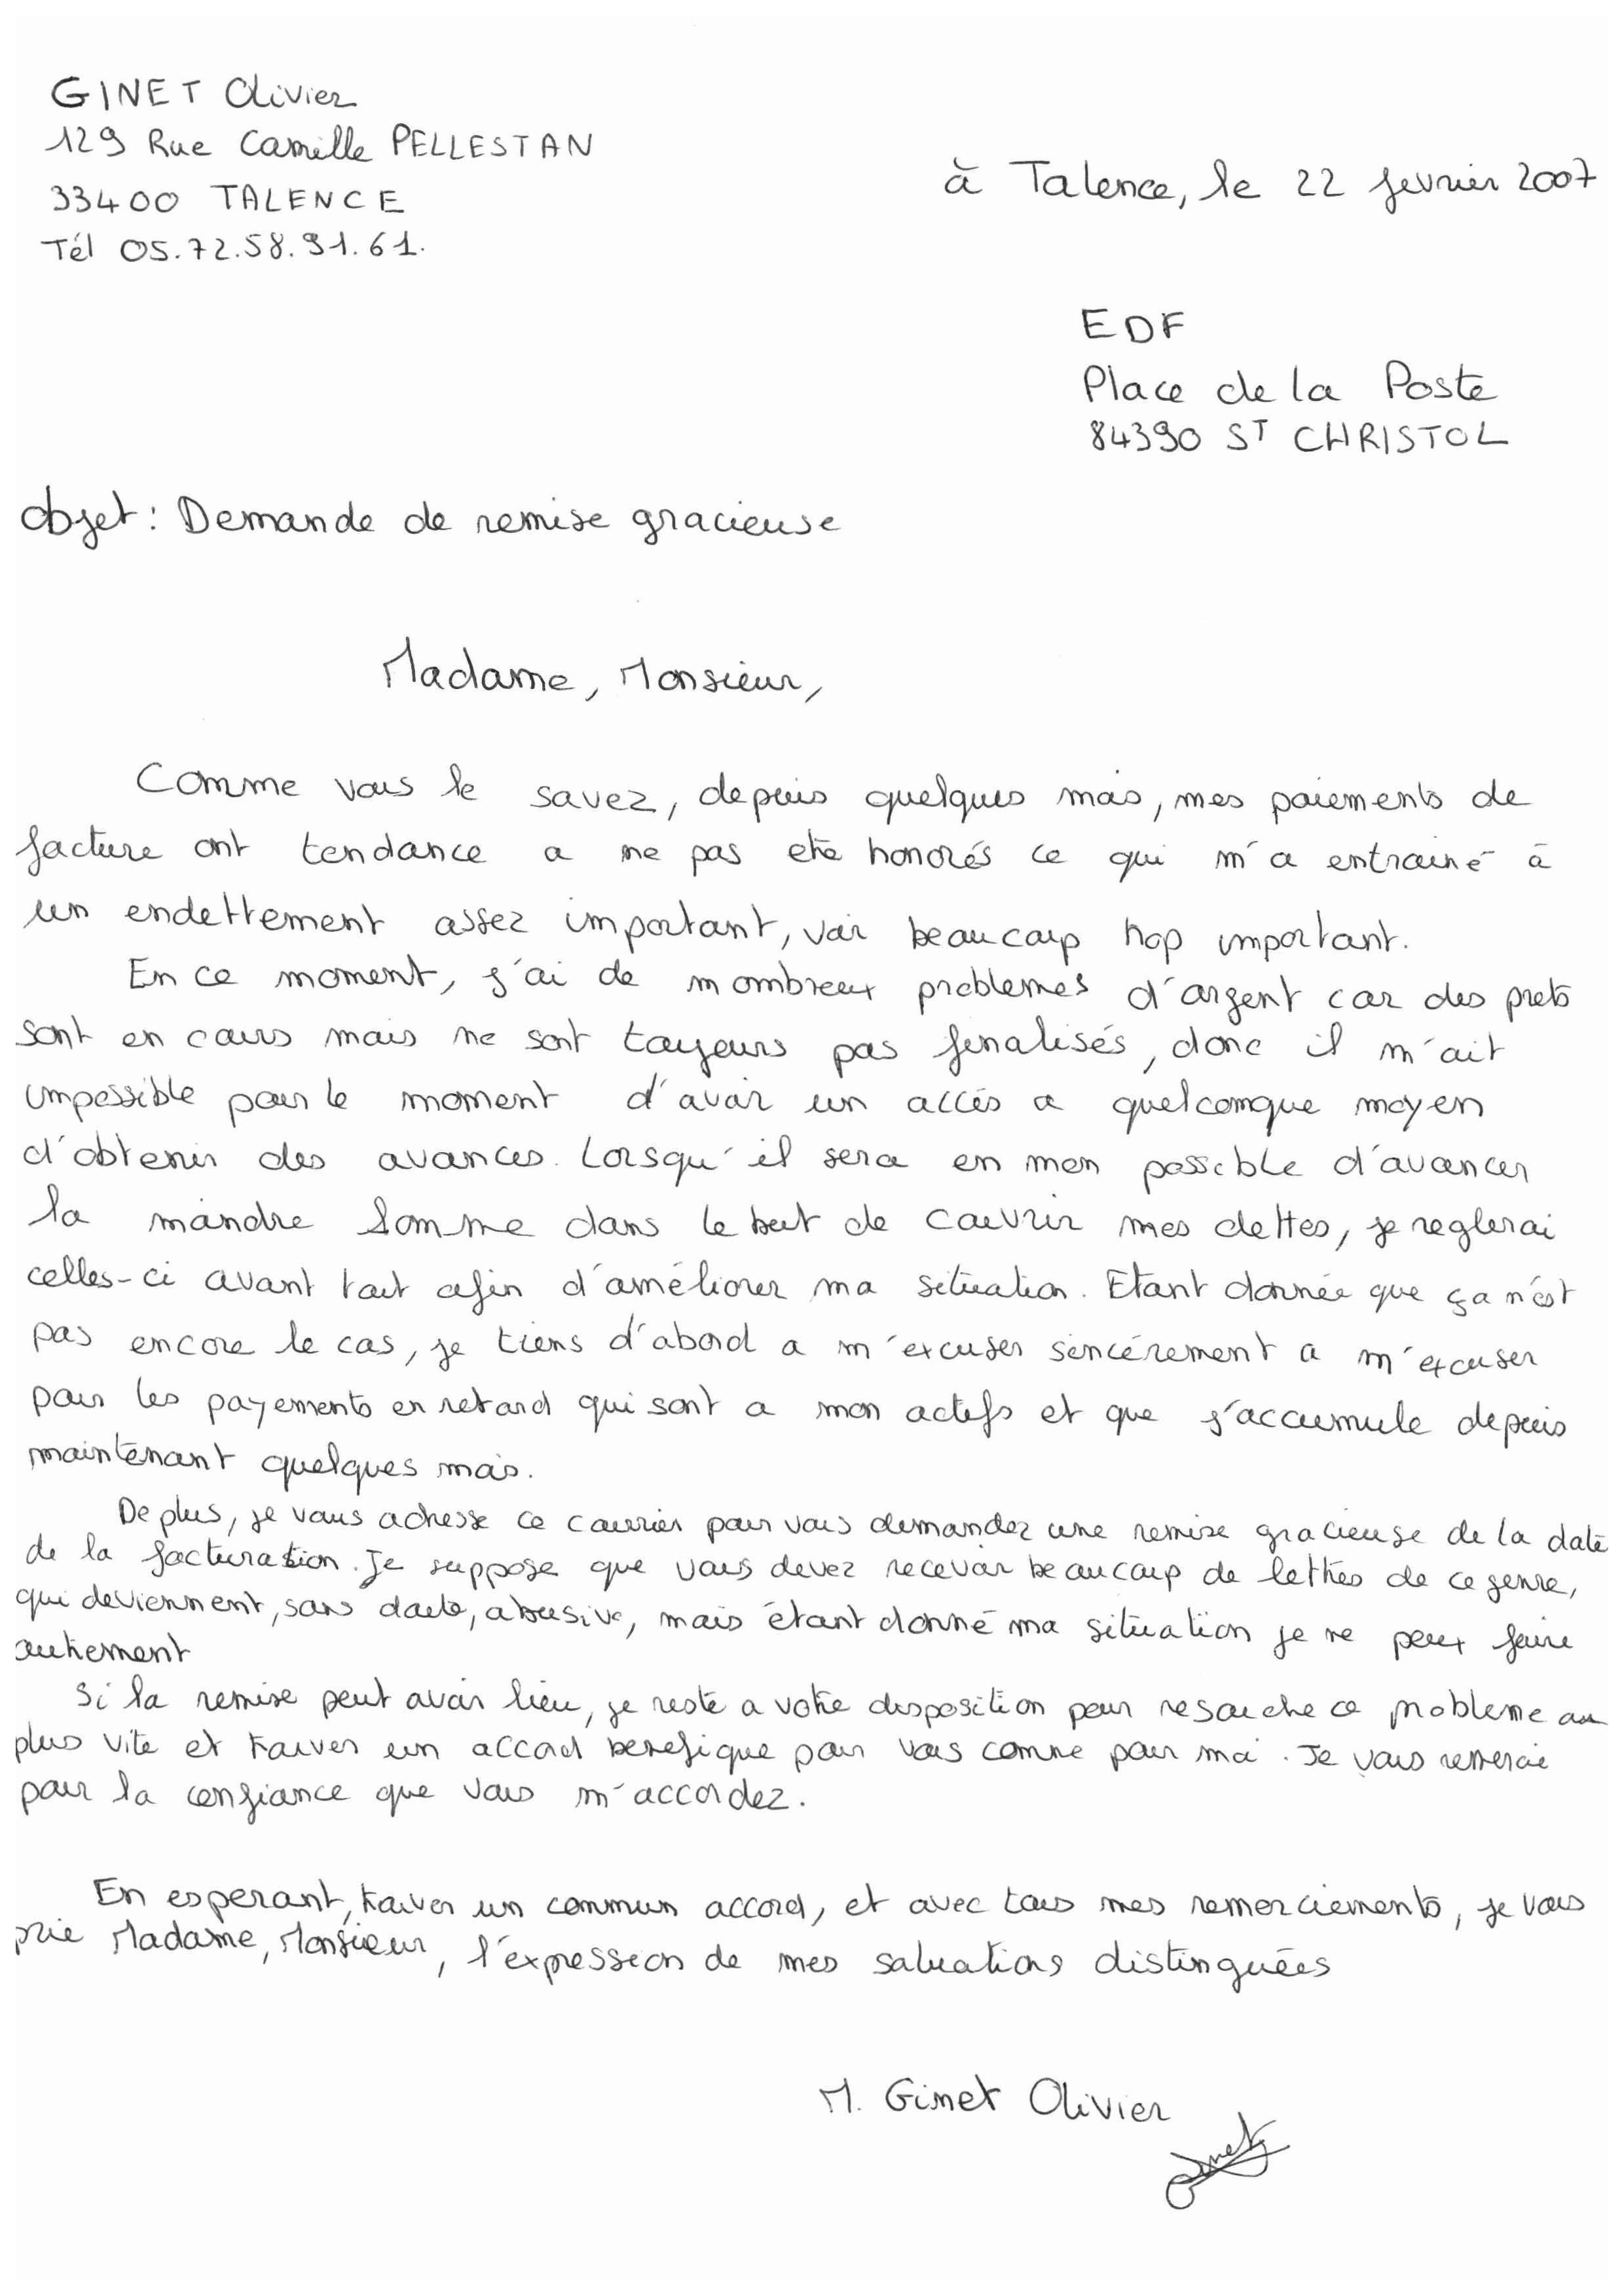 GINET Olivier
129 Rue Camille PELLESTAN
33400 TALENCE
Tél 05.72.58.91.61.
à Talence, le 22 fevrier 2007
EDF
Place de la Poste
84390 ST CHRISTOL
objet : Demande de remise gracieuse
Madame, Monsieur,
Comme vous le savez, depuis quelques mois, mes paiements de
facture ont tendance a ne pas eté honorés ce qui m'a entrainé à
un endettement assez important, voir beaucoup trop important.
En ce moment, j'ai de nombreux problemes d'argent car des prets
sont en cours mais ne sont toujours pas finalisés, donc il m'ait
impossible pour le moment d'avoir un accés a quelconque moyen
d'obtenir des avances. Lorsqu'il sera en mon possible d'avancer
la moindre somme dans le but de couvrir mes dettes, je reglerai
celles-ci avant tout afin d'améliorer ma situation. Etant donnée que ça n'est
pas encore le cas, je tiens d'abord a m'excuser sincérement a m'excuser
pour les payements en retard qui sont a mon actifs et que j'accumule depuis
maintenant quelques mois.
De plus, je vous adresse ce courrier pour vous demandez une remise gracieuse de la date
de la facturation. Je suppose que vous devez recevoir beaucoup de lettres de ce genre,
qui deviennent, sans doute, abusive, mais étant donné ma situation je ne peux faire
autrement
Si la remise peut avoir lieu, je reste a votre disposition pour resoudre ce probleme au
plus vite et trouver un accord benefique pour vous comme pour moi. Je vous remercie
pour la confiance que vous m'accordez.
En esperant, trouver un commun accord, et avec tous mes remerciements, je vous
prie Madame, Monsieur, l'expression de mes saluations distinguées
M. Ginet Olivier
Ginet